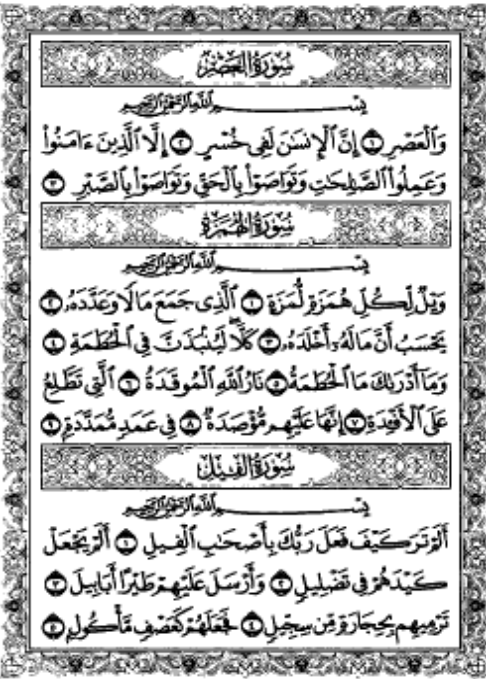 سُورَةُ الْعَصْرِ
بِسْمِ اللَّهِ الرَّحْمَٰنِ الرَّحِيمِ
وَالْعَصْرِ ١ إِنَّ الْإِنسَٰنَ لَفِي خُسْرٍ ٢ إِلَّا الَّذِينَ ءَامَنُوا
وَعَمِلُوا الصَّٰلِحَٰتِ وَتَوَاصَوْا بِالْحَقِّ وَتَوَاصَوْا بِالصَّبْرِ ٣
سُورَةُ الْهُمَزَةِ
بِسْمِ اللَّهِ الرَّحْمَٰنِ الرَّحِيمِ
وَيْلٌ لِّكُلِّ هُمَزَةٍ لُّمَزَةٍ ١ الَّذِي جَمَعَ مَالًا وَعَدَّدَهُۥ ٢
يَحْسَبُ أَنَّ مَالَهُۥٓ أَخْلَدَهُۥ ٣ كَلَّا ۖ لَيُنۢبَذَنَّ فِي الْحُطَمَةِ ٤
وَمَآ أَدْرَىٰكَ مَا الْحُطَمَةُ ٥ نَارُ اللَّهِ الْمُوقَدَةُ ٦ الَّتِي تَطَّلِعُ
عَلَى الْأَفْـِٔدَةِ ٧ إِنَّهَا عَلَيْهِم مُّؤْصَدَةٌ ٨ فِي عَمَدٍ مُّمَدَّدَةٍ ٩
سُورَةُ الْفِيلِ
بِسْمِ اللَّهِ الرَّحْمَٰنِ الرَّحِيمِ
أَلَمْ تَرَ كَيْفَ فَعَلَ رَبُّكَ بِأَصْحَٰبِ الْفِيلِ ١ أَلَمْ يَجْعَلْ
كَيْدَهُمْ فِي تَضْلِيلٍ ٢ وَأَرْسَلَ عَلَيْهِمْ طَيْرًا أَبَابِيلَ ٣
تَرْمِيهِم بِحِجَارَةٍ مِّن سِجِّيلٍ ٤ فَجَعَلَهُمْ كَعَصْفٍ مَّأْكُولٍ ٥